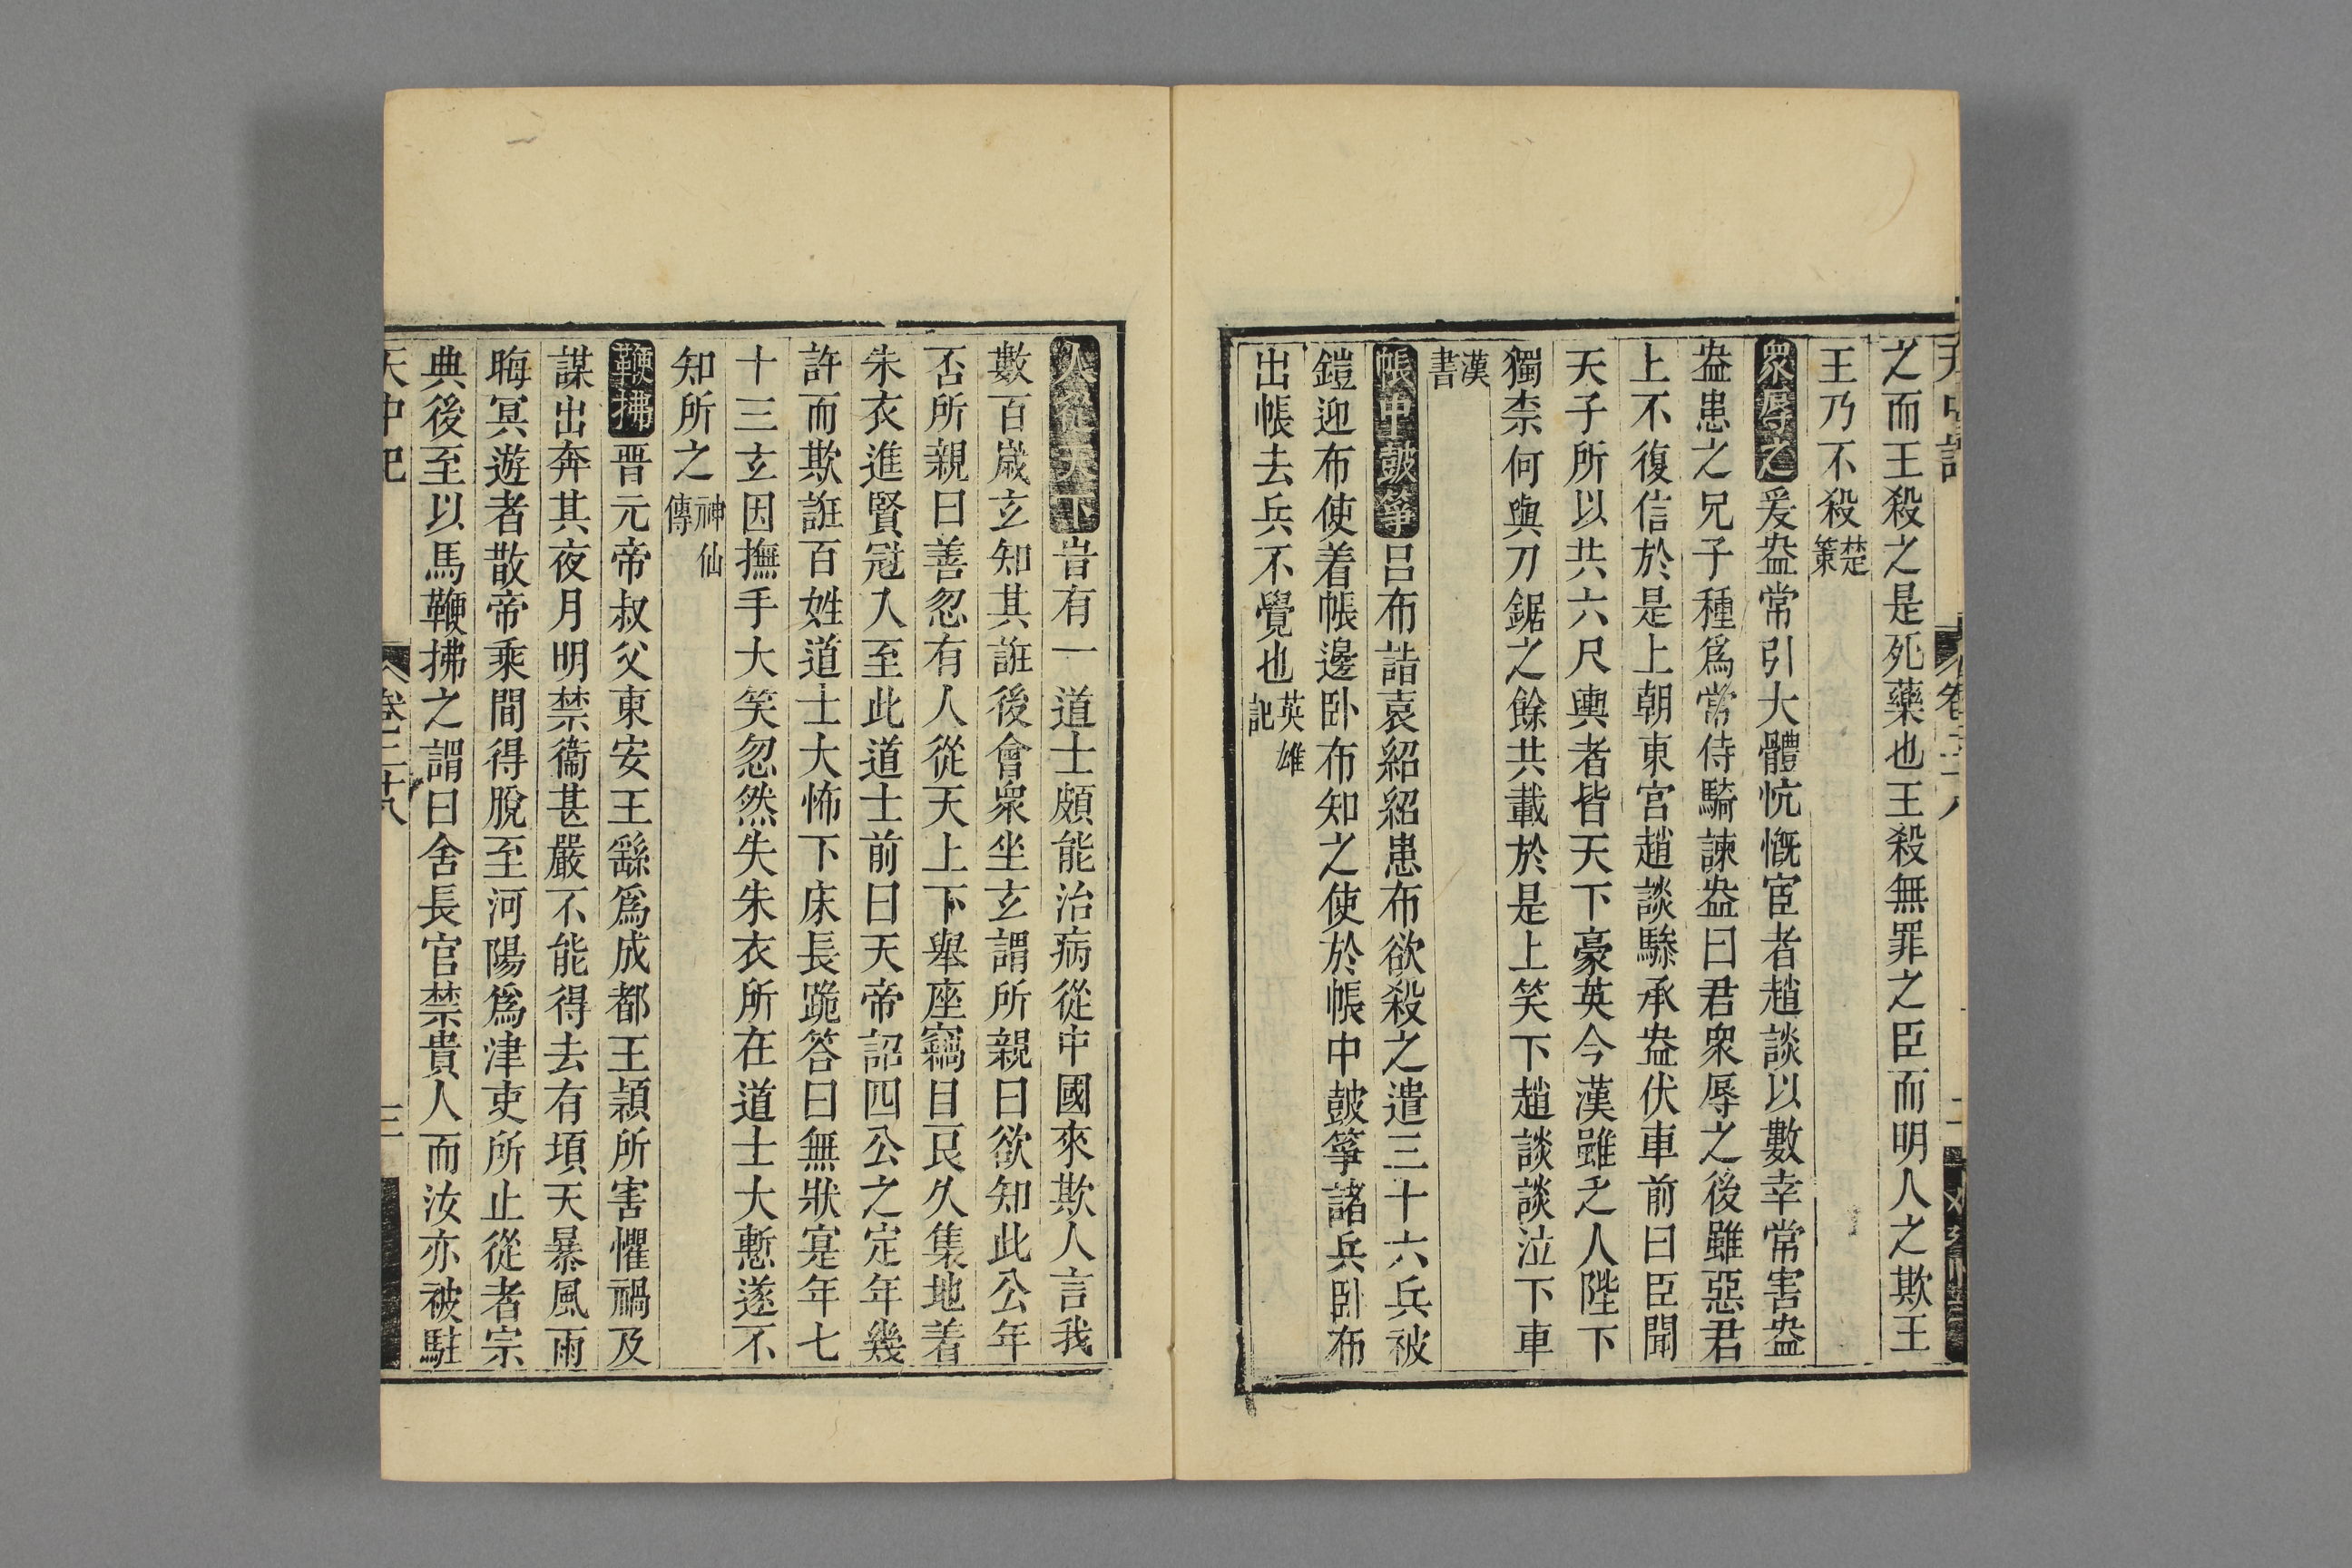 之而王殺之是死藥也王殺無罪之臣而明人之欺王
王乃不殺楚策
衆辱之爰盎常引大體忼慨宦者趙談以數幸常害盎
盎患之兄子種爲常侍騎諫盎曰君衆辱之後雖惡君
上不復信於是上朝東宮趙談驂承盎伏車前曰臣聞
天子所以共六尺輿者皆天下豪英今漢雖乏人陛下
獨柰何與刀鋸之餘共載於是上笑下趙談談泣下車
漢書
帳中鼓箏呂布詣袁紹紹患布欲殺之遣三十六兵被
鎧迎布使着帳邊卧布知之使於帳中皷箏諸兵卧布
出帳去兵不覺也英雄記
人從天下昔有一道士頗能治病從中國來欺人言我
數百嵗玄知其誑後會衆坐玄謂所親曰欲知此公年
否所親曰善忽有人從天上下舉座竊目良久集地着
朱衣進賢冠入至此道士前曰天帝詔四公之定年幾
許而欺誑百姓道士大怖下床長跪答曰無狀寔年七
十三玄因撫手大笑忽然失朱衣所在道士大慙遂不
知所之神仙傳
鞭拂晋元帝叔父東安王繇爲成都王穎所害懼禍及
謀出奔其夜月明禁衛甚嚴不能得去有頃天暴風雨
晦冥遊者散帝乘間得脫至河陽爲津吏所止從者宗
典後至以馬鞭拂之謂曰舍長官禁貴人而汝亦被駐
天中記 卷二十八 三